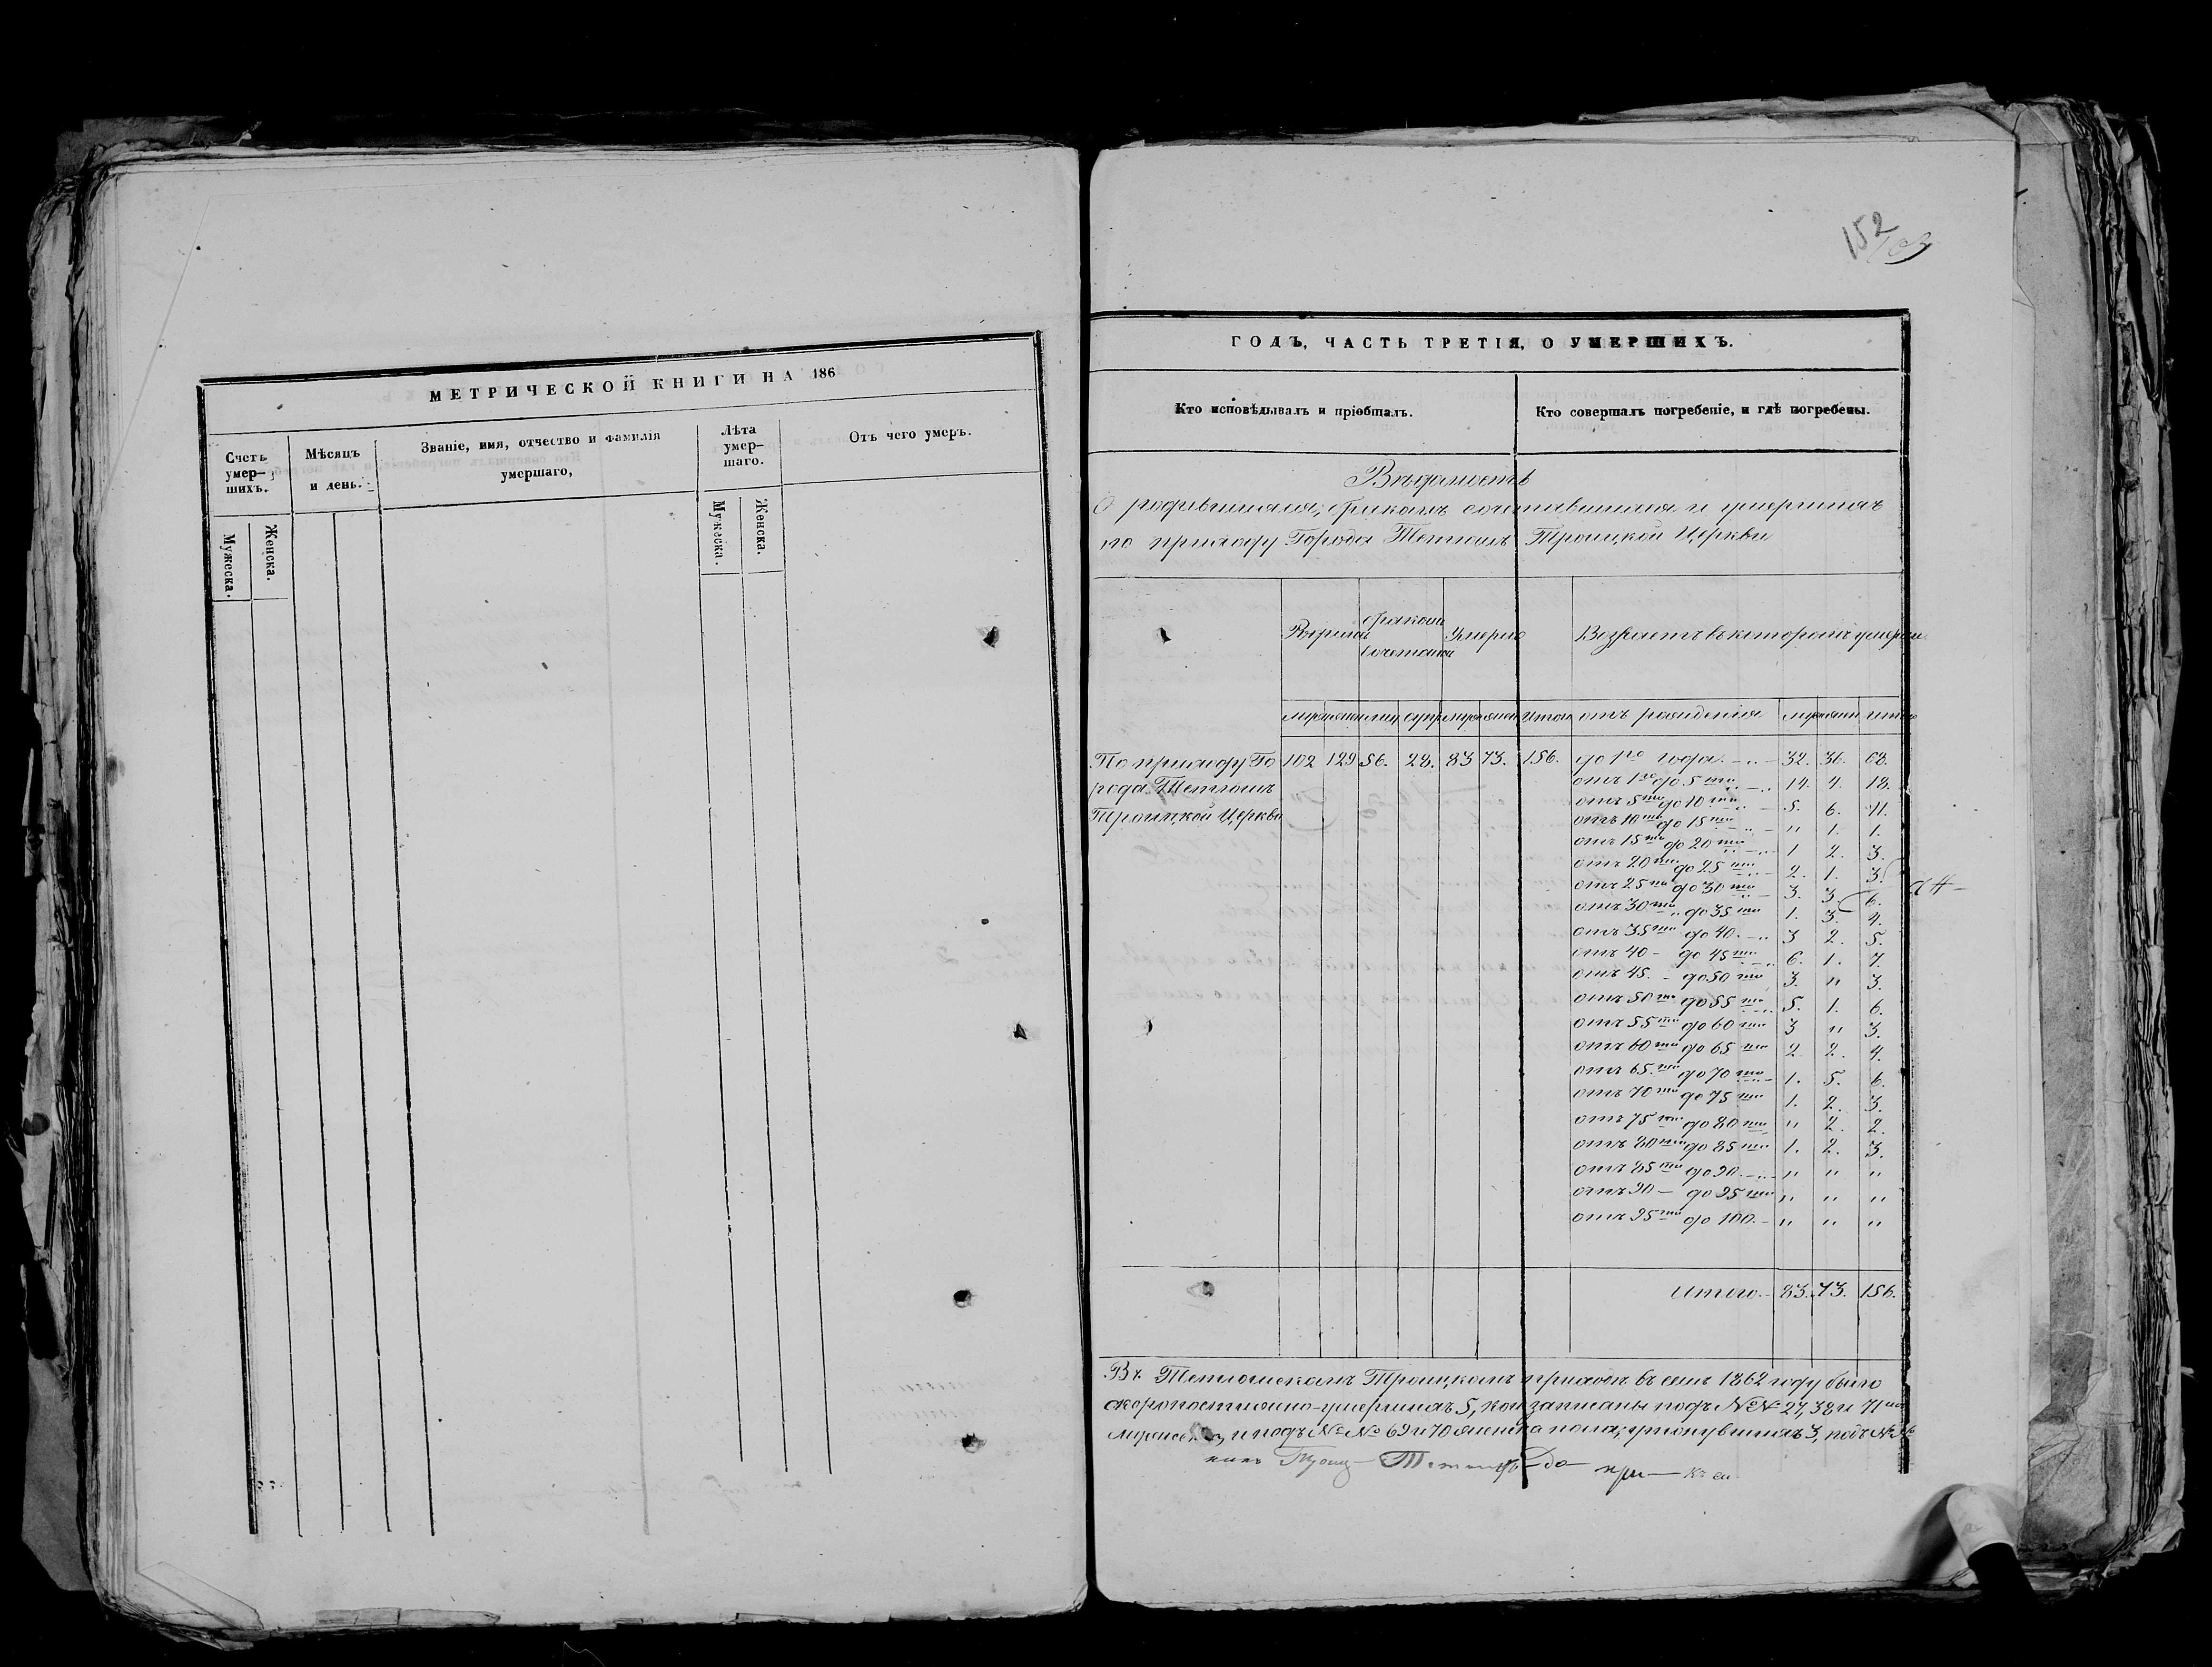 МЕТРИЧЕСКОЙ КНИГИ НА 186
Счетъ умер- шихъ.
Мѣсяцъ и день.
Званіе, имя, отчество и фамилія умершаго,
Лѣта умер- шаго.
Отъ чего умеръ.
Мужеска.
Женска.
Мужеска.
Женска.
152
ГОДЪ, ЧАСТЬ ТРЕТІЯ, О УМЕРШИХЪ.
Кто исповѣдывалъ и пріобщалъ.
Кто совершалъ погребеніе, и гдѣ погребены.
Вѣдомость
О родившихся, бракомъ сочетавшихся и умершихъ
по приходу Города Тетюшъ Троицкой Церкви
бракомъ
умерло
Возрастъ въ которомъ умерли
отъ рожденія
По приходу Го 102 129 56. 28. 83 73. 156. до 1го года 32. 36. 68.
рода Тетюшъ отъ 1го до 5ти 14. 4. 18.
Троицкой Церкви отъ 5ти до 10ти 5. 6. 11.
отъ 10ти до 15ти " 1. 1.
отъ 15ти до 20ти 1 2. 3.
отъ 20ти до 25ти 2. 1. 3.
отъ 25ти до 30ти 3. 3. 6.
отъ 30ти до 35ти 1. 3. 4.
отъ 35ти до 40. 3 2. 5.
отъ 40 - до 45ти 6. 1. 7.
отъ 45. - до 50ти 3. " 3.
отъ 50ти до 55ти 5. 1. 6.
отъ 55ти до 60ти 3 " 3.
отъ 60ти до 65ти 2 2. 4.
отъ 65.ти до 70ти 1. 5. 6.
отъ 70ти до 75ти 1. 2. 3.
отъ 75ти до 80ти " 2. 2.
отъ 80ти до 85ти 1. 2. 3.
отъ 85ти до 90. " " "
отъ 90 - до 95ти " " "
отъ 95ти до 100. " " "
Итого. 83. 73. 156.
Въ Тетюшскомъ Троицкомъ приходѣ въ семъ 1862 году было
скоропостижно-умершихъ 5, кои записаны подъ №№ 27, 38 и 71
и подъ №№ 69 и 70 женска пола; утонувшихъ 3, подъ №